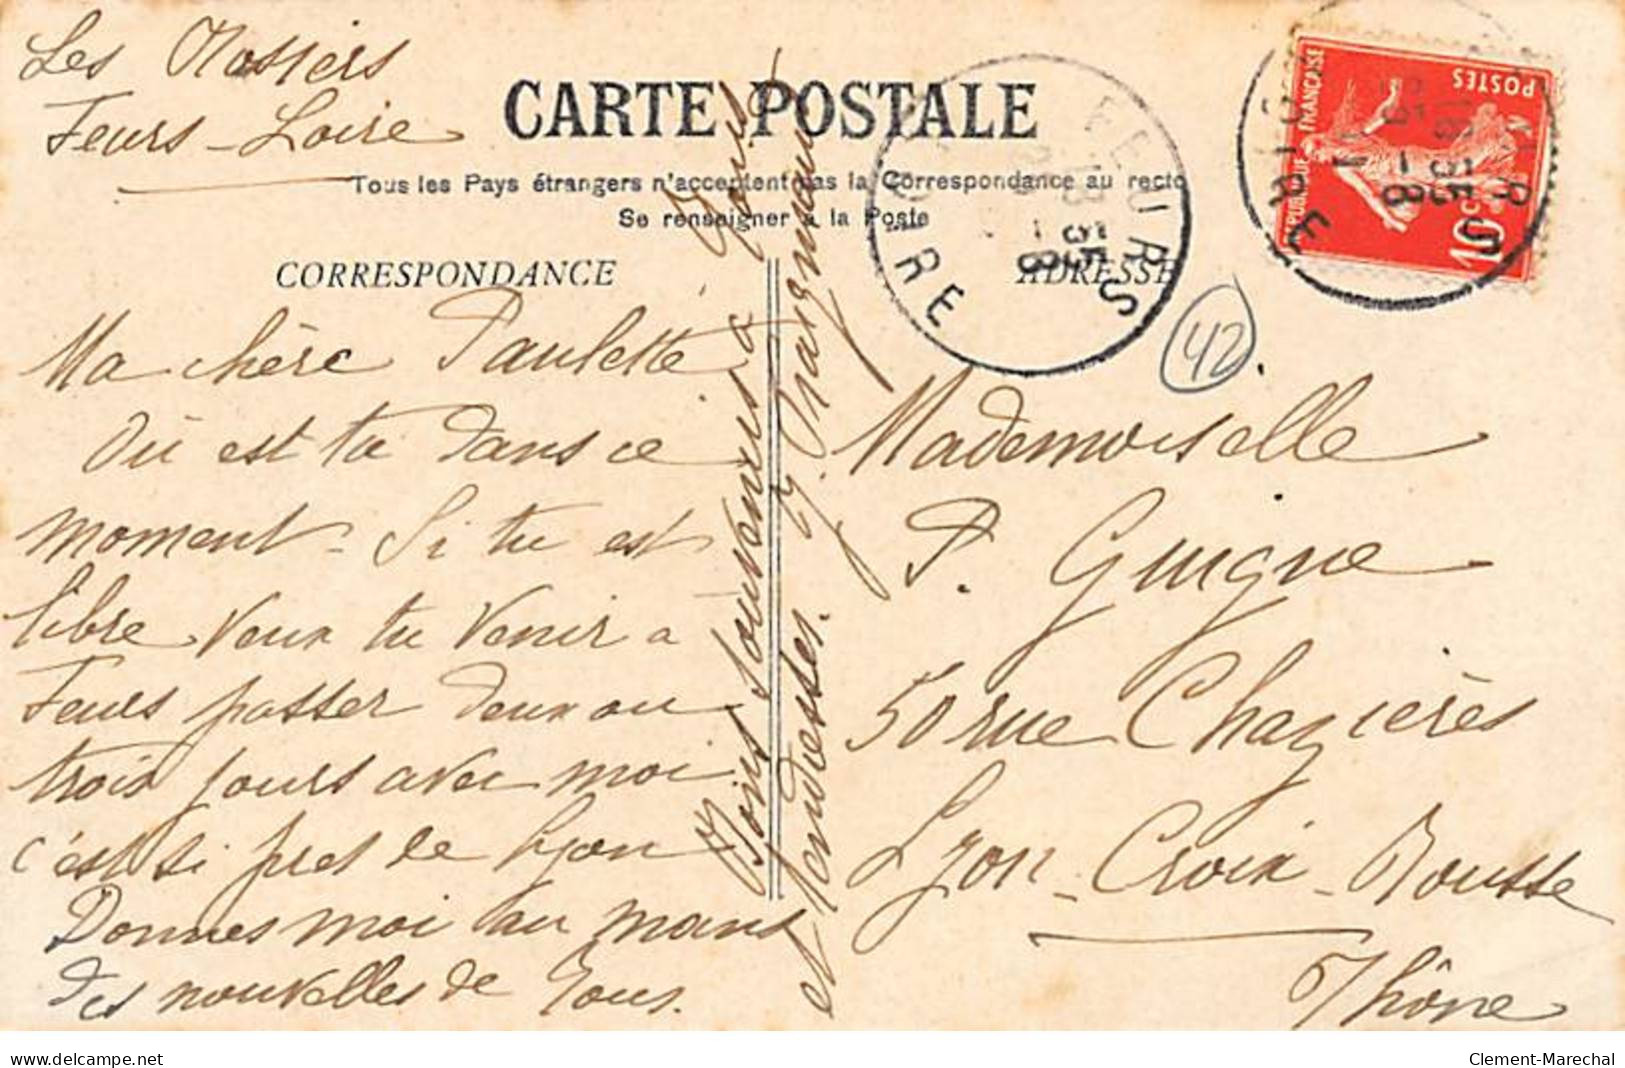 Les Rossiers
Feurs - Loire
CARTE POSTALE
Tous les Pays étrangers n'acceptent pas la Correspondance au recto
Se renseigner à la Poste
CORRESPONDANCE
ADRESSE
Ma chère Paulette
Où est tu dans ce
moment - Si tu est
libre veux tu venir à
Feurs passer deux ou
trois jours avec moi
c'est si pres de Lyon
Donnes moi au moins
des nouvelles de tous.
Bons souvenirs à tous
et tendresses.
FEURS
LOIRE
18 35
FEURS
LOIRE
18 35
REPUBLIQUE FRANÇAISE
POSTES
10c
42
Mademoiselle
P. Guigne
50 rue Chazières
Lyon - Croix - Rousse
Rhône
www.delcampe.net
Clement-Marechal